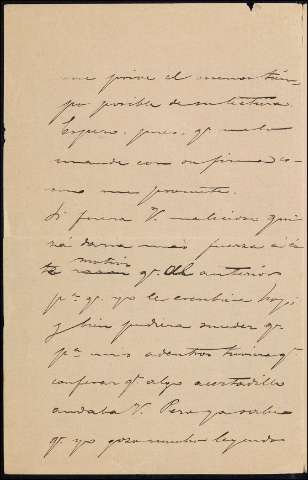 me prive el menos tiem-
po posible de su lectura.
Espero, pues, q. me la
mande con su firma co-
mo me promete.
Si fuera V. malicioso quizá
daria mas fuerza á
motivo q. al anterior
pª q. yo le escribiera hoy,
y bien pudiera suceder q.
pª mis adentros tuviera q.
confesar q. algo acertadillo
andaba V. Pero ya sabe
q. yo gozo mucho leyendo